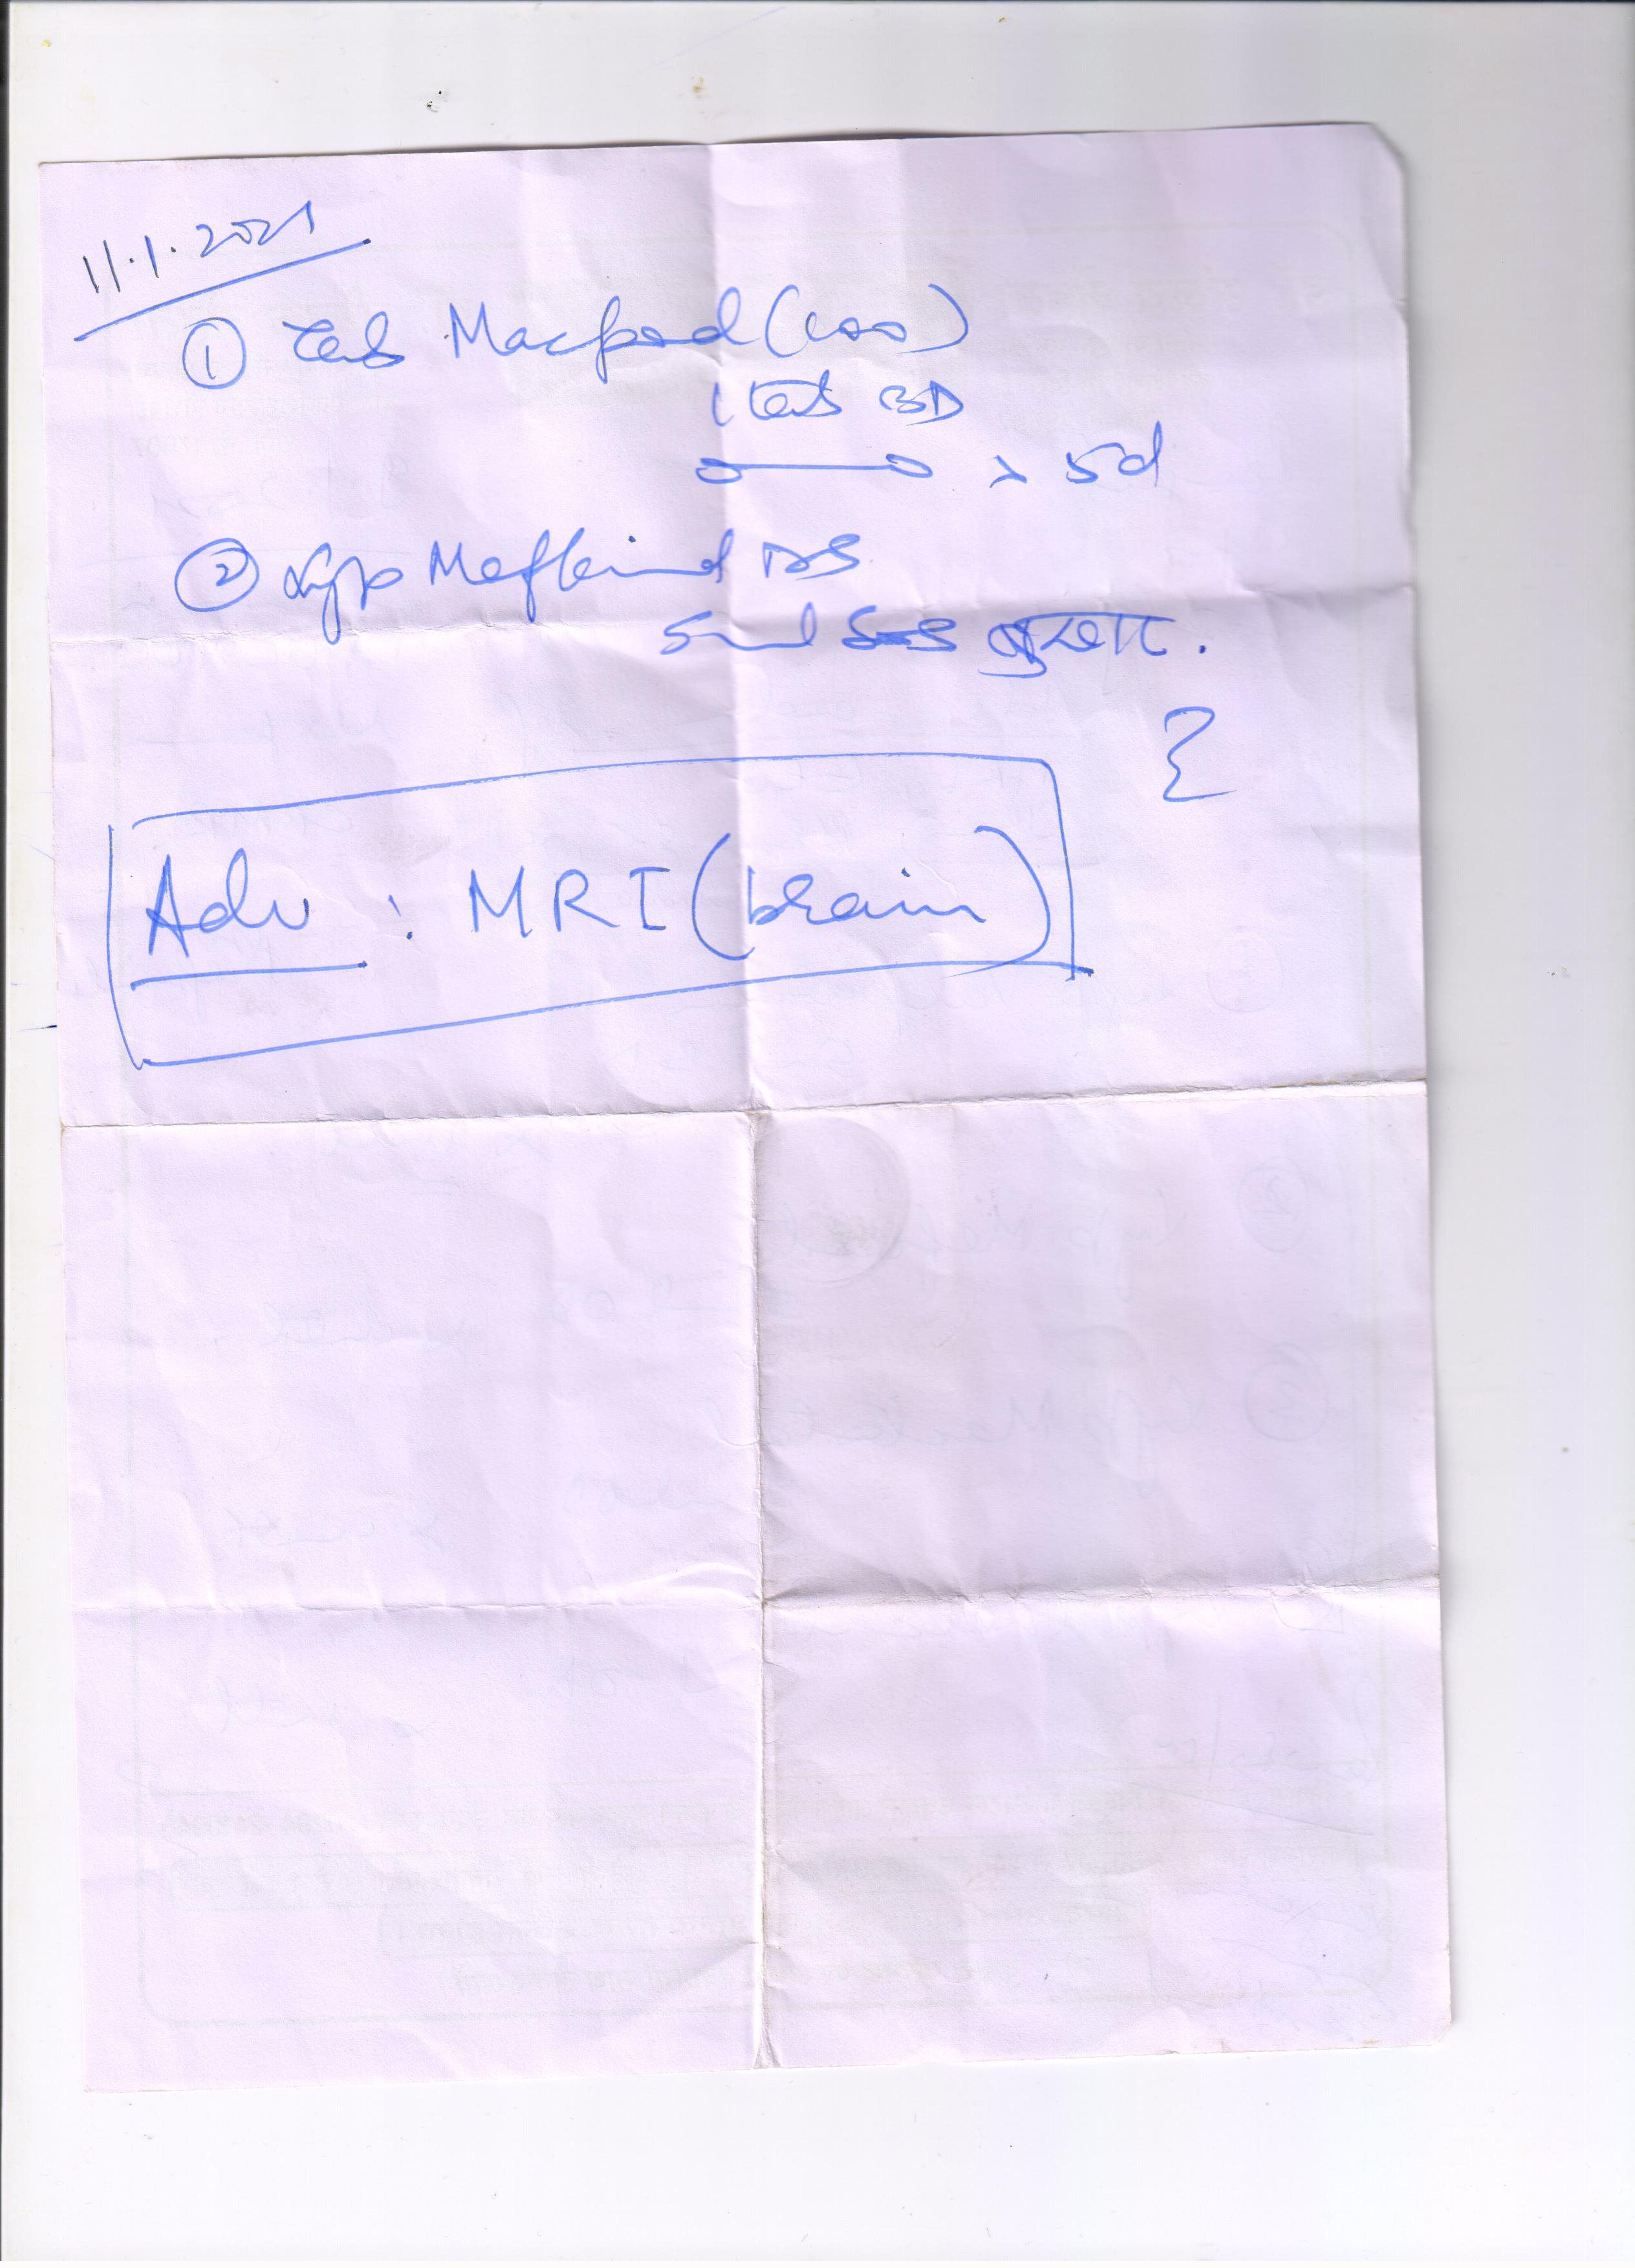 11.1.2021
① Tab Macpod (100)
1 tab BD
x 5d
② Syp Mefkind DS
5ml SOS
Adv : MRI (brain)